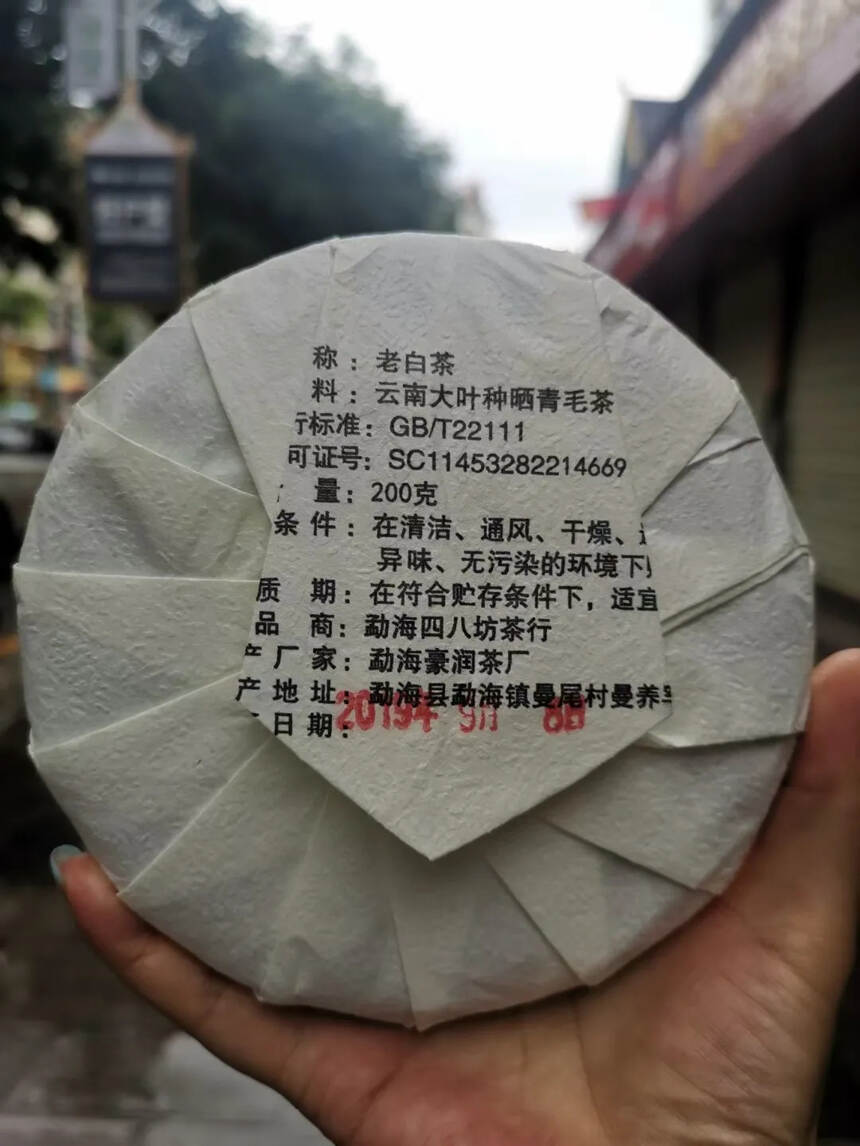 称：老白茶
料：云南大叶种晒青毛茶
行标准：GB/T22111
可证号：SC11453282214669
量：200克
条件：在清洁、通风、干燥、
异味、无污染的环境下
质 期：在符合贮存条件下，适宜
品 商：勐海四八坊茶行
产厂家：勐海豪润茶厂
产地址：勐海县勐海镇曼尾村曼养
日期：2019年 9月 6日